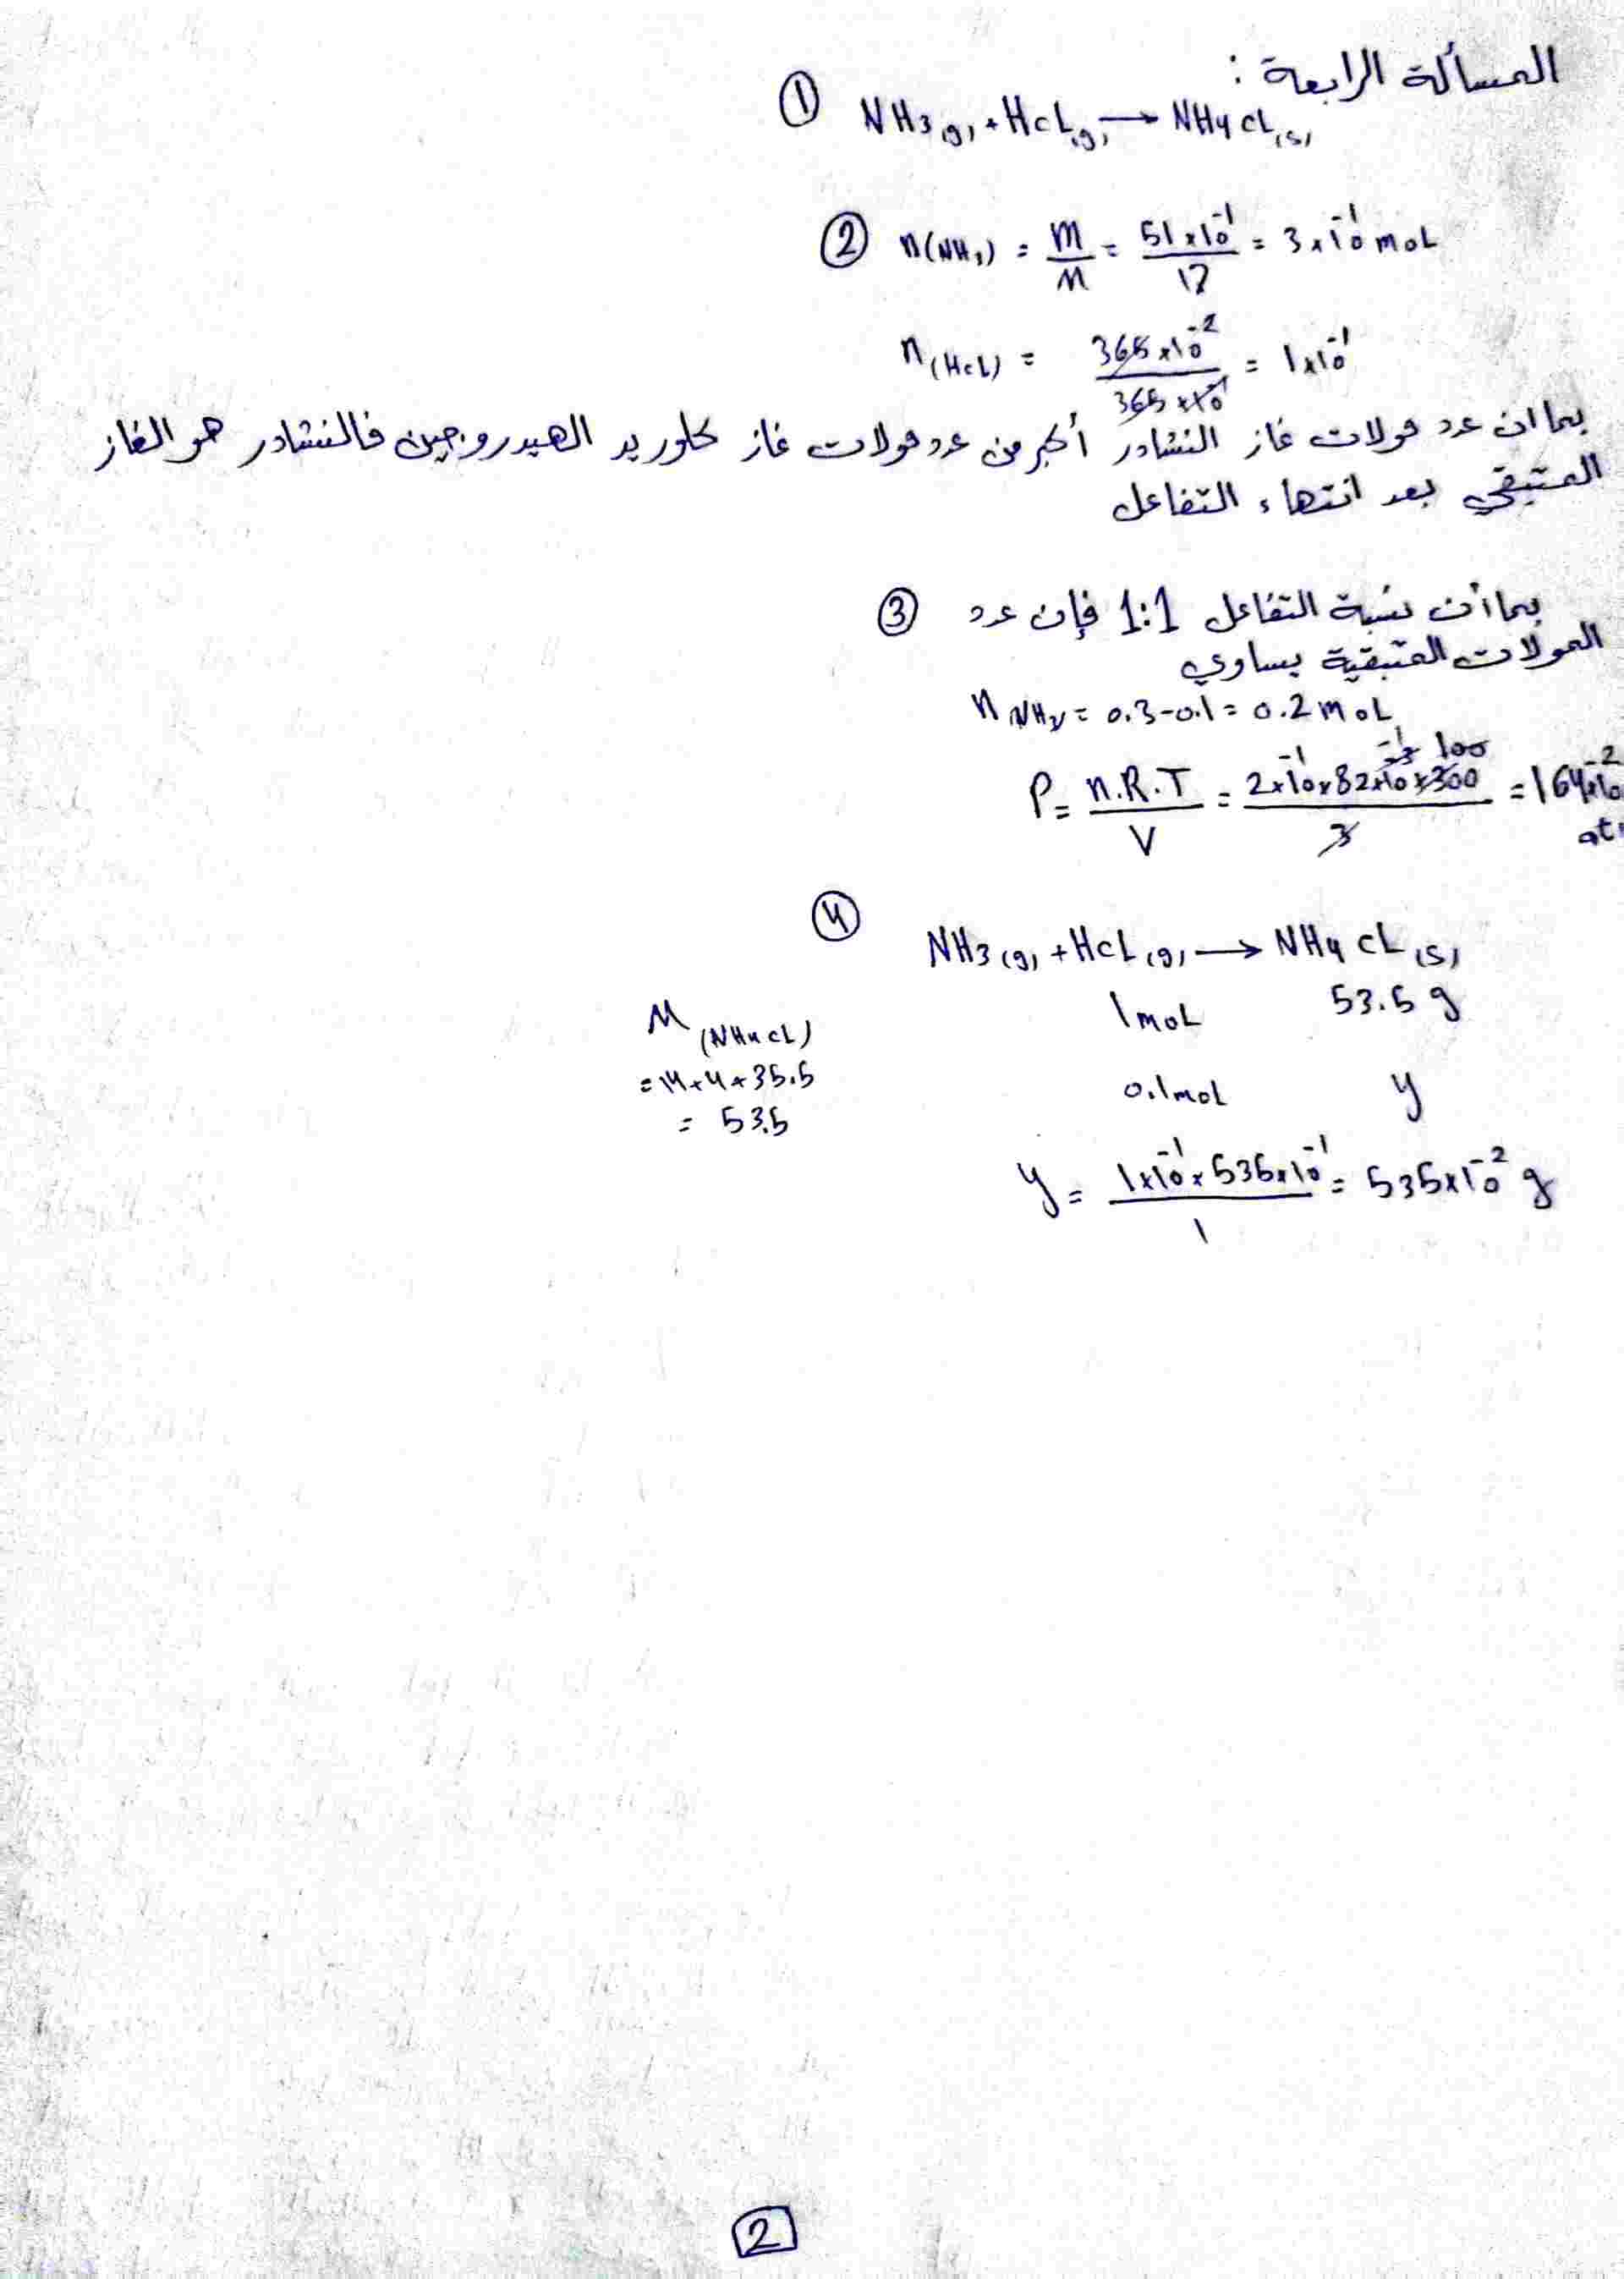 المسألة الرابعة :
① NH3(g) + HCL(g) → NH4CL(s)
② n(NH3) = m/M = 51×10⁻¹/17 = 3×10⁻¹ moL
n(HCL) = 365×10⁻²/365×10⁻¹ = 1×10⁻¹
بما ان عدد مولات غاز النشادر أكبر من عدد مولات غاز كلوريد الهيدروجين فالنشادر هو الغاز
المتبقي بعد انتهاء التفاعل
③ بما أن نسبة التفاعل 1:1 فإن عدد
المولات المتبقية يساوي
n NH3 = 0.3-0.1 = 0.2 moL
P = n.R.T/V = 2×10⁻¹×82×10⁻³×300/3 = 164×10⁻²
④ NH3(g) + HCL(g) → NH4CL(s)
1 moL 53.5 g
M(NH4CL)
= 14+4+35.5
= 53.5
0.1moL y
y = 1×10⁻¹×535×10⁻¹/1 = 535×10⁻² g
2